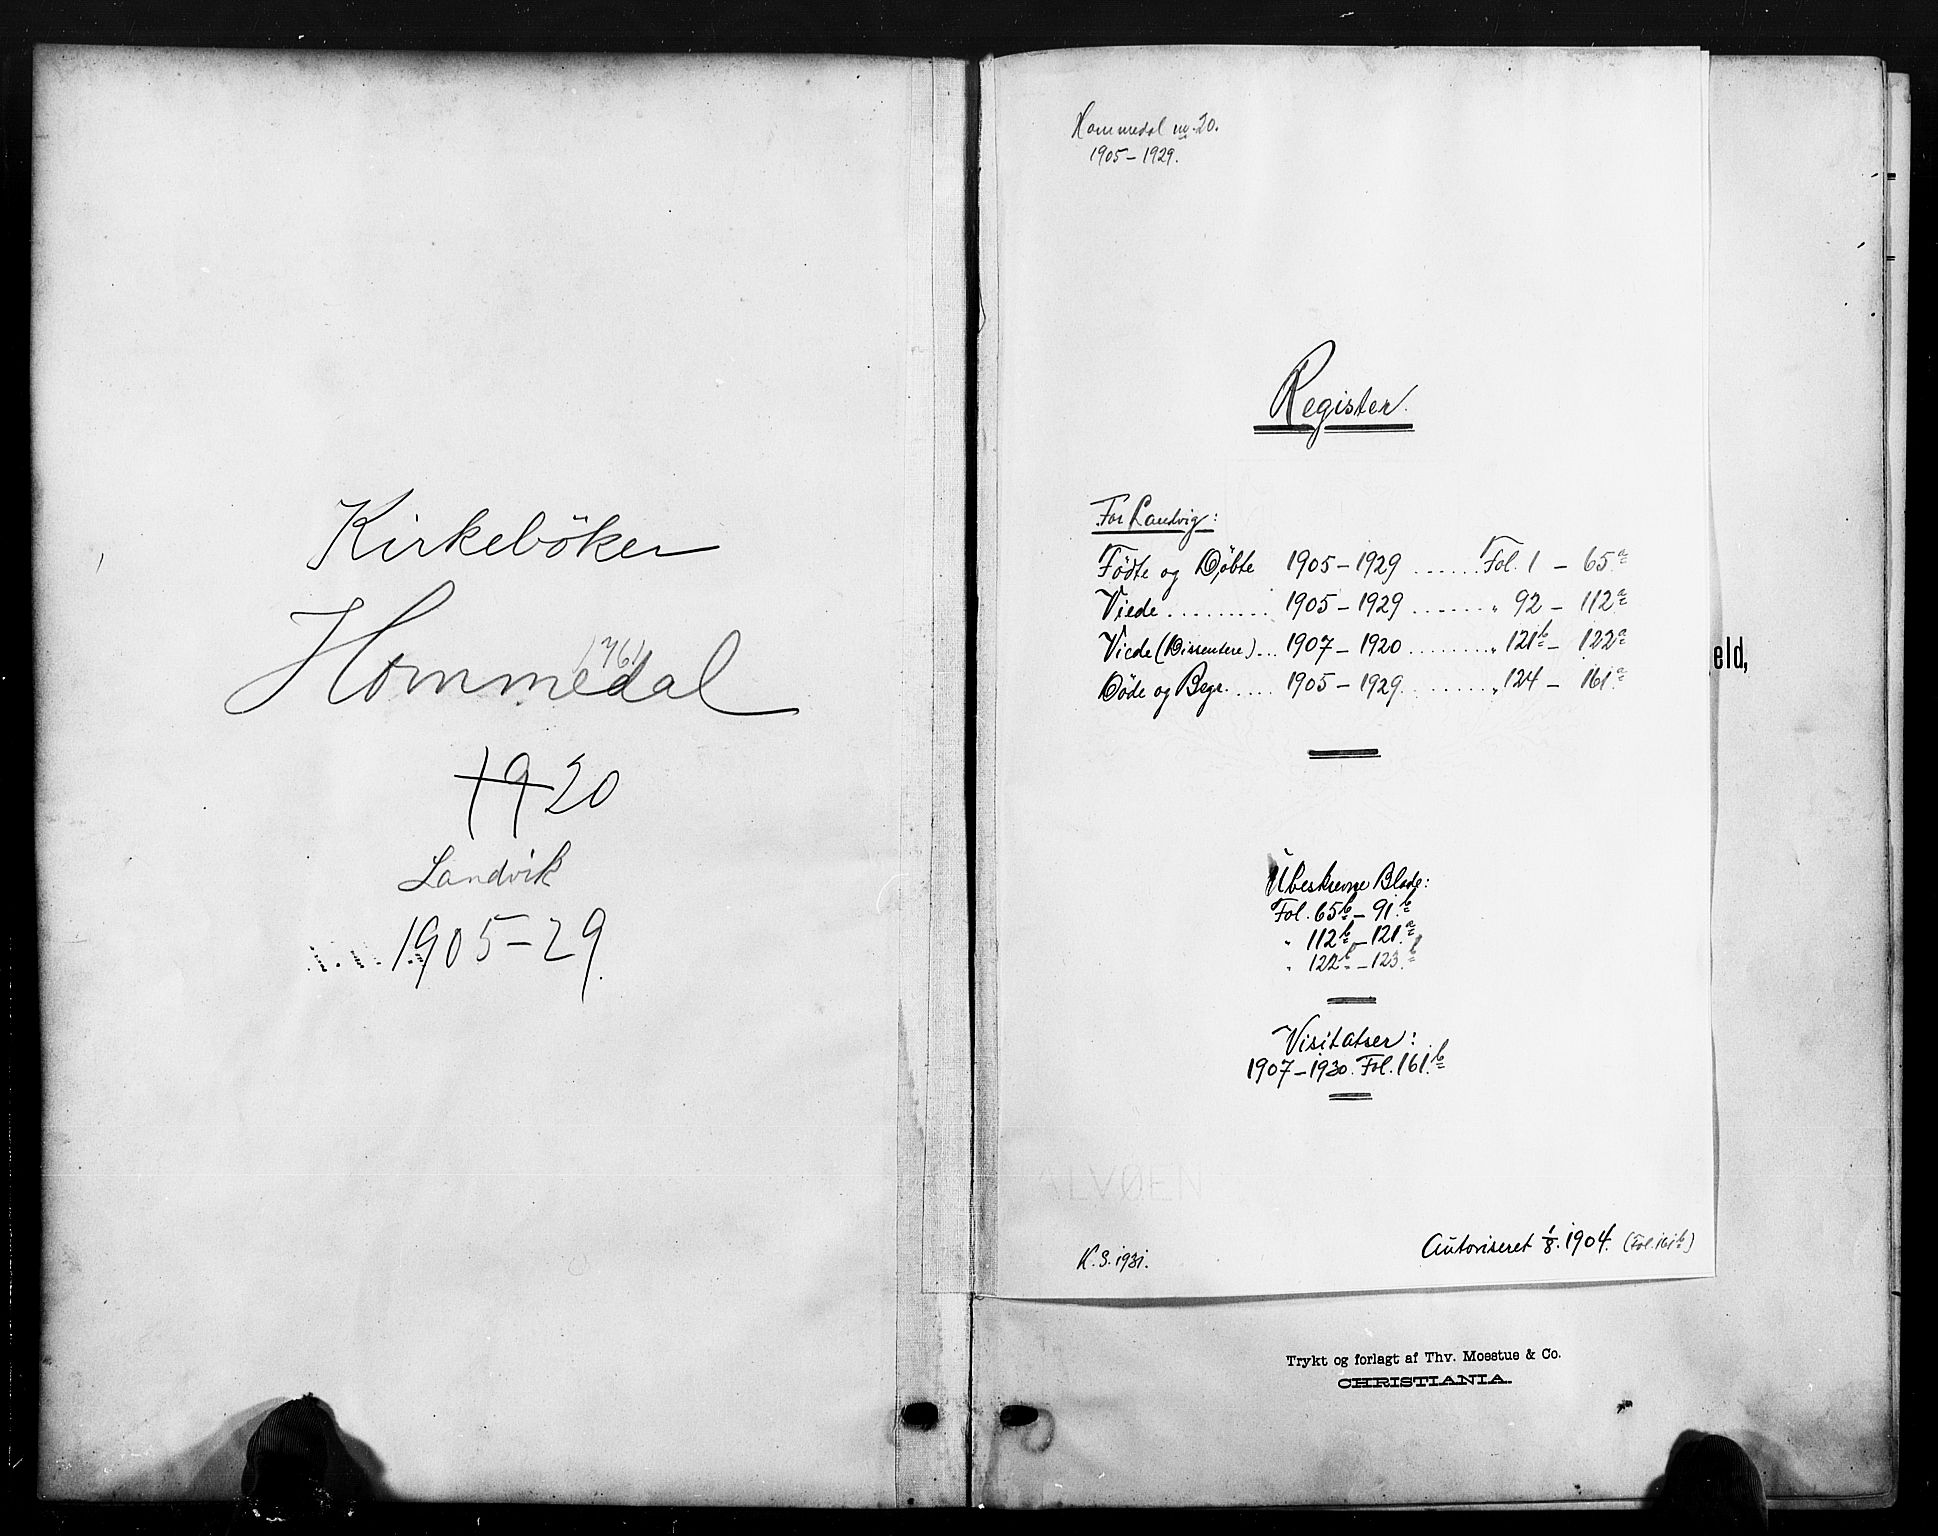 Kirkebøker
Hommedal
20
Landvik
1905-29.
Hommedal no. 20.
1905 - 1929.
Register.
For Landvig:
Födte og Döbte 1905 - 1929 ...... Fol. 1 - 65a
Viede ......... 1905 - 1929 ...... " 92 - 112a
Viede (Dissentere)... 1907 - 1920 ........ " 121b - 122a
Döde og Begr. .... 1905 - 1929 ........ " 124 - 161a
Ubeskrevne Blade:
Fol. 65b - 91b
" 112b - 121a
" 122b - 123b
Visitatser:
1907 - 1930. Fol. 161b
ALVØEN
K. S. 1931.
Autoriseret 1/8. 1904. (Fol. 161b)
eld,
Trykt og forlagt af Thv. Moestue & Co.
CHRISTIANIA.